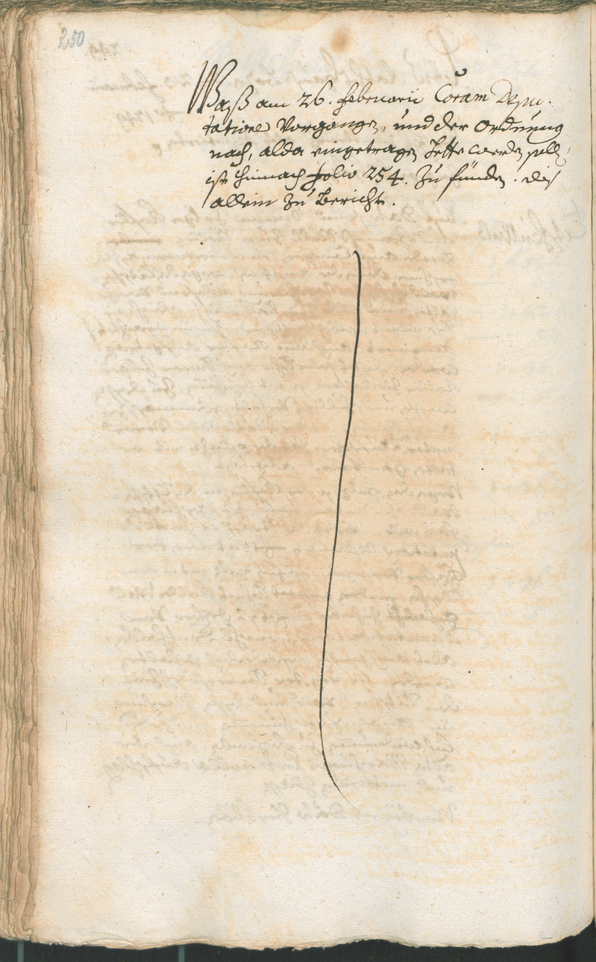 250
Waß am 26. Februarii Coram Depu-
tatione Vorgangen, und der Ordnung
nach, alda eingetragen hette werden solln,
ist hinnach folio 254. zu finden. des
allein zu Bericht.